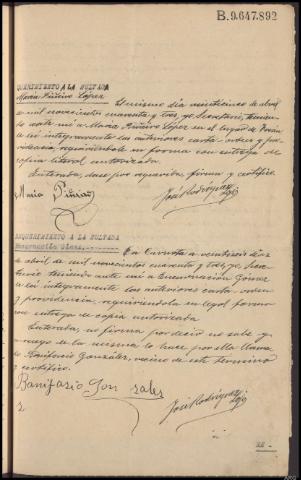 B.9.647.892
REQUERIMIENTO A LA MULTADA
Maria Piñeiro López
dia veinticinco de abril
de mil novecientos cuarenta y tres, yo Secretario, tenien-
do ante mi a Maria Piñeiro López en el lugar de
le leí integramente las anteriores carta orden y pro-
videncia, requiriéndole en forma con entrega de
copia literal autorizada.
Enterada, dase por requerida, firma y certifico.
Maria Piñeiro
José Rodríguez
REQUERIMIENTO A LA MULTADA
Encarnación Gómez
En Carnota a veintiseis
de abril de mil novecientos cuarenta y tres, yo Secre-
tario teniendo ante mi a Encarnación Gómez
le leí integramente las anteriores carta orden
y providencia, requiriéndola en legal forma
con entrega de copia autorizada
Enterada, no firma por decir no sabe y a
ruego de la misma lo hace por ella
Bonifacio González, vecino de este término
y certifico.
Banifasio Gon sales
José Rodríguez
22 -